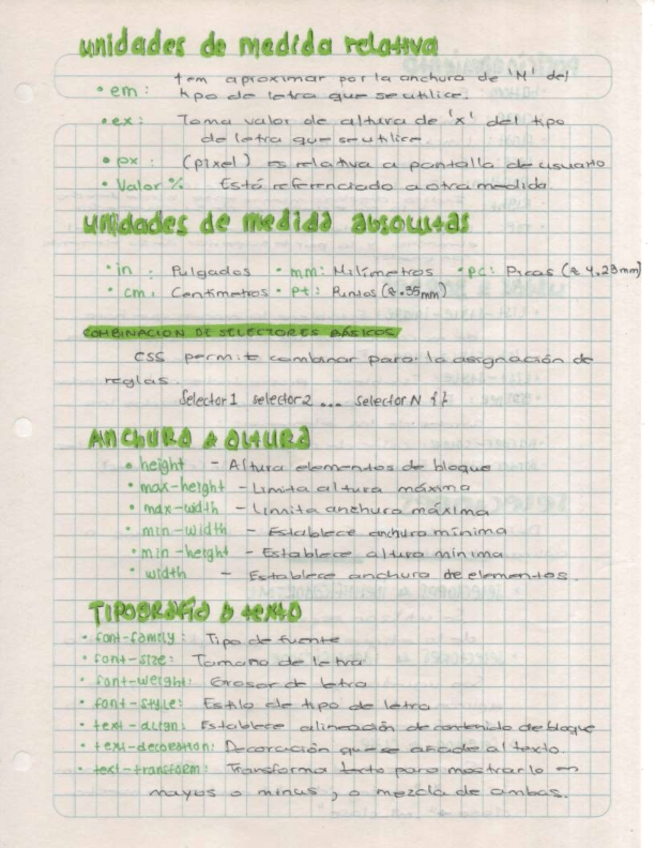 unidades de medida relativa
1em aproximar por la anchura de 'M' del
• em: tipo de letra que se utilice.
• ex: Toma valor de altura de 'x' del tipo
de letra que se utilice
• px: (pixel) es relativa a pantalla de usuario
• Valor % Está referenciado a otra medida.
unidades de medida absolutas
• in : Pulgadas • mm: Milímetros • pc: Picas (≈ 4.23mm)
• cm: Centímetros • pt: Puntos (≈ .35mm)
COMBINACION DE SELECTORES BÁSICOS
CSS permite combinar para la asignación de
reglas.
Selector1 selector2 ... selector N { }
ANCHURA & altura
• height - Altura elementos de bloque
• max-height - Limita altura máxima
• max-width - Limita anchura máxima
• min-width - Establece anchura mínima
• min-height - Establece altura mínima
• width - Establece anchura de elementos.
TIPOGRAFÍA & texto
• font-family: Tipo de fuente
• font-size: Tamaño de letra
• font-weight: Grosor de letra
• font-style: Estilo de tipo de letra
• text-align: Establece alineación de contenido de bloque
• text-decoration: Decoración que se añade al texto.
• text-transform: Transforma texto para mostrarlo en
mayus o minus, o mezcla de ambas.